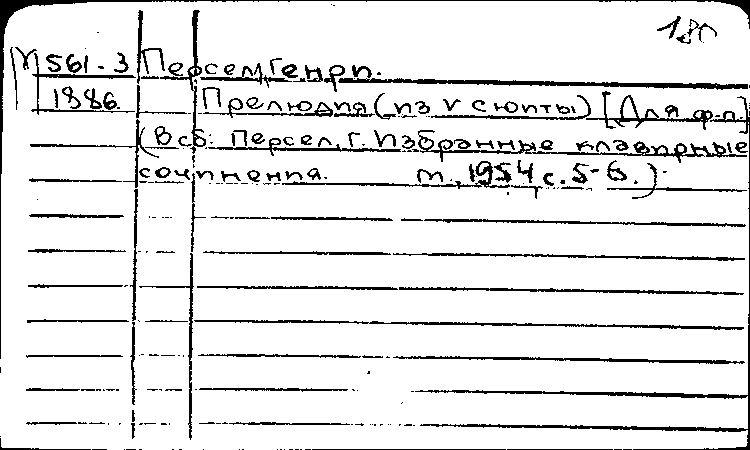 180
М561-3 Персел, Генри.
1886. Прелюдия (из V сюиты) [Для ф-п.]
(В сб: Персел, Г. Избранные клавирные
сочинения. М., 1954 с. 5-6.).